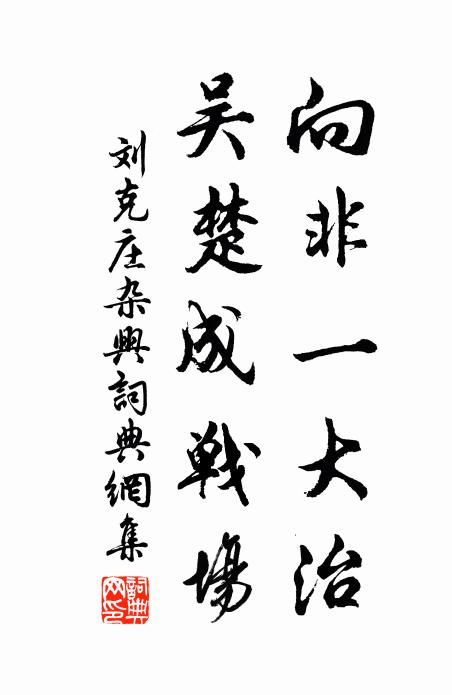 向非一大治
吴楚成戦場
刘克庄杂興詞典網集
詞典网印